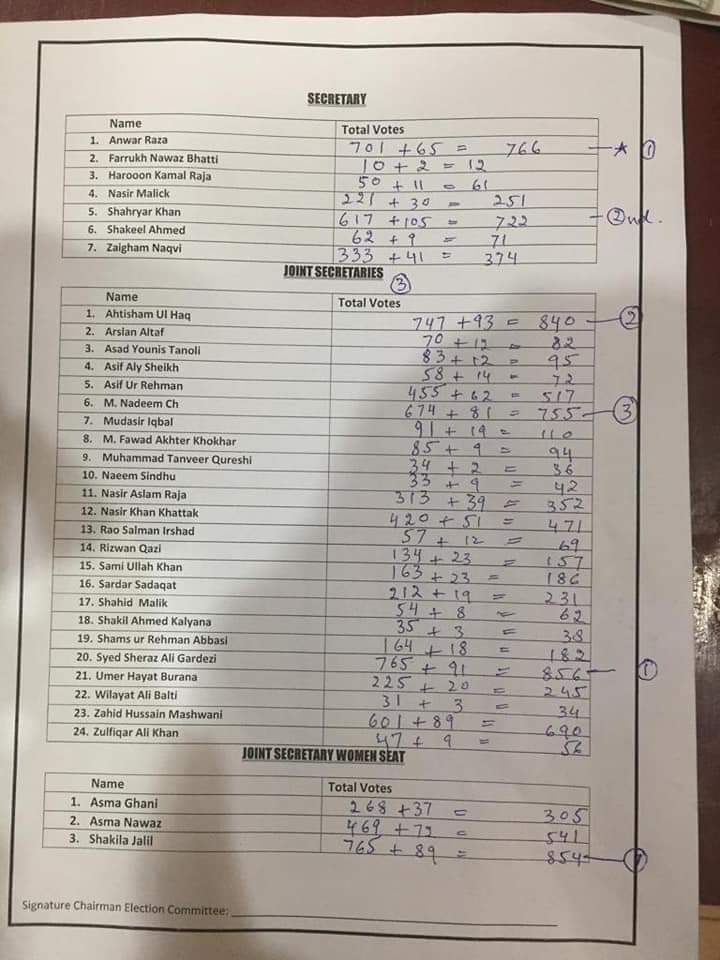 SECRETARY
Name Total Votes
1. Anwar Raza 701 + 65 = 766 ★ 1
2. Farrukh Nawaz Bhatti 10 + 2 = 12
3. Harooon Kamal Raja 50 + 11 = 61
4. Nasir Malick 221 + 30 = 251
5. Shahryar Khan 617 + 105 = 722 2nd.
6. Shakeel Ahmed 62 + 9 = 71
7. Zaigham Naqvi 333 + 41 = 374
JOINT SECRETARIES
3
Name Total Votes
1. Ahtisham Ul Haq 747 + 93 = 840 2
2. Arslan Altaf 70 + 12 = 82
3. Asad Younis Tanoli 83 + 12 = 95
4. Asif Aly Sheikh 58 + 14 = 72
5. Asif Ur Rehman 455 + 62 = 517
6. M. Nadeem Ch 674 + 81 = 755 3
7. Mudasir Iqbal 91 + 19 = 110
8. M. Fawad Akhter Khokhar 85 + 9 = 94
9. Muhammad Tanveer Qureshi 34 + 2 = 36
10. Naeem Sindhu 33 + 9 = 42
11. Nasir Aslam Raja 313 + 39 = 352
12. Nasir Khan Khattak 420 + 51 = 471
13. Rao Salman Irshad 57 + 12 = 69
14. Rizwan Qazi 134 + 23 = 157
15. Sami Ullah Khan 163 + 23 = 186
16. Sardar Sadaqat 212 + 19 = 231
17. Shahid Malik 54 + 8 = 62
18. Shakil Ahmed Kalyana 35 + 3 = 38
19. Shams ur Rehman Abbasi 164 + 18 = 182
20. Syed Sheraz Ali Gardezi 765 + 91 = 856 1
21. Umer Hayat Burana 225 + 20 = 245
22. Wilayat Ali Balti 31 + 3 = 34
23. Zahid Hussain Mashwani 601 + 89 = 690
24. Zulfiqar Ali Khan 47 + 9 = 56
JOINT SECRETARY WOMEN SEAT
Name Total Votes
1. Asma Ghani 268 + 37 = 305
2. Asma Nawaz 469 + 72 = 541
3. Shakila Jalil 765 + 89 = 854 1
Signature Chairman Election Committee: